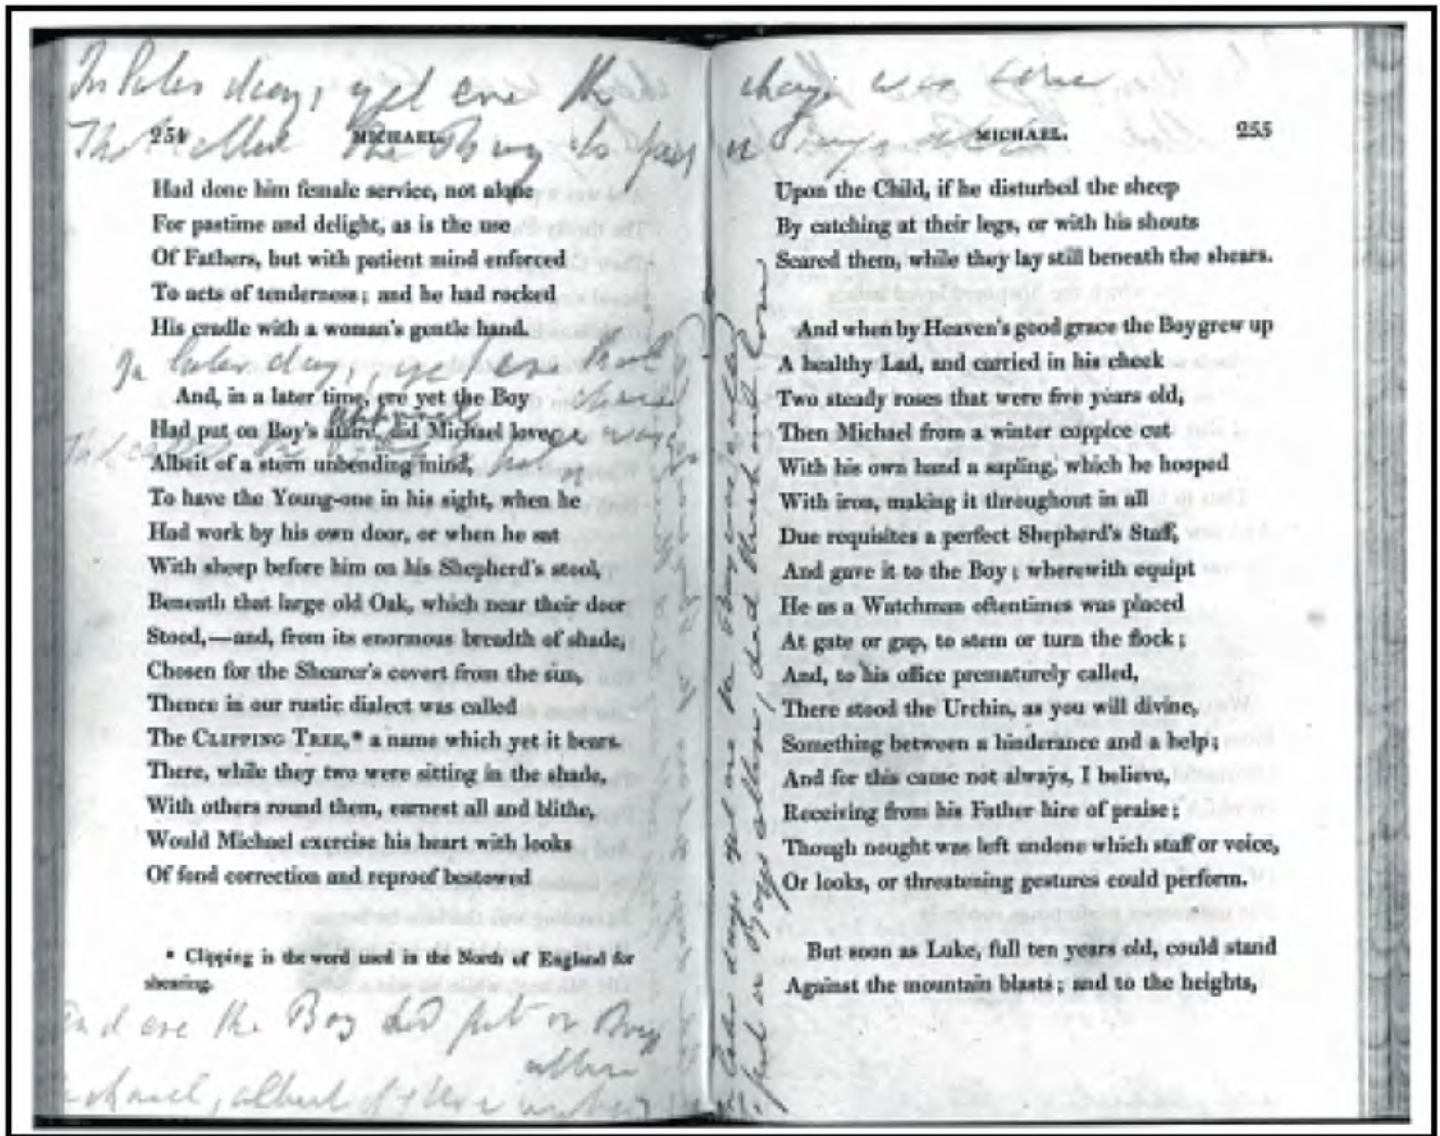 In later days, yet ere the change was
254 MICHAEL.
The Boy to put on
Had done him female service, not alone
For pastime and delight, as is the use
Of Fathers, but with patient mind enforced
To acts of tenderness; and he had rocked
His cradle with a woman's gentle hand.
In later days, yet ere that
And, in a later time, ere yet the Boy
Had put on Boy's attire, did Michael love,
Albeit of a stern unbending mind,
To have the Young-one in his sight, when he
Had work by his own door, or when he sat
With sheep before him on his Shepherd's stool,
Beneath that large old Oak, which near their door
Stood,—and, from its enormous breadth of shade,
Chosen for the Shearer's covert from the sun,
Thence in our rustic dialect was called
The CLIPPING TREE,* a name which yet it bears.
There, while they two were sitting in the shade,
With others round them, earnest all and blithe,
Would Michael exercise his heart with looks
Of fond correction and reproof bestowed
* Clipping is the word used in the North of England for
shearing.
And ere the Boy had put on Boy
attire
albeit of
MICHAEL. 255
Upon the Child, if he disturbed the sheep
By catching at their legs, or with his shouts
Scared them, while they lay still beneath the shears.
And when by Heaven's good grace the Boy grew up
A healthy Lad, and carried in his cheek
Two steady roses that were five years old,
Then Michael from a winter coppice cut
With his own hand a sapling, which he hooped
With iron, making it throughout in all
Due requisites a perfect Shepherd's Staff,
And gave it to the Boy; wherewith equipt
He as a Watchman oftentimes was placed
At gate or gap, to stem or turn the flock;
And, to his office prematurely called,
There stood the Urchin, as you will divine,
Something between a hinderance and a help;
And for this cause not always, I believe,
Receiving from his Father hire of praise;
Though nought was left undone which staff or voice,
Or looks, or threatening gestures could perform.
But soon as Luke, full ten years old, could stand
Against the mountain blasts; and to the heights,